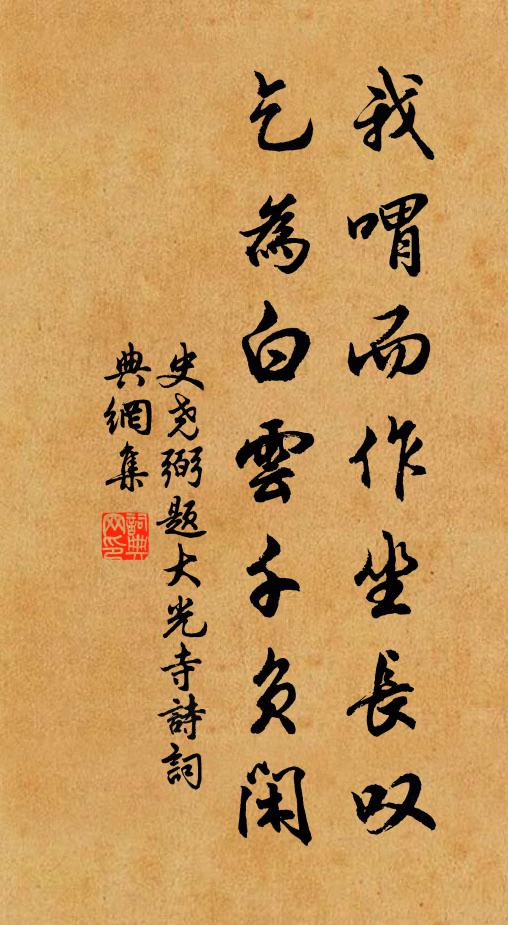 我喟而作坐長叹
乞為白雲千負閑
史尧弼题大光寺詩詞
典網集
詞典网印